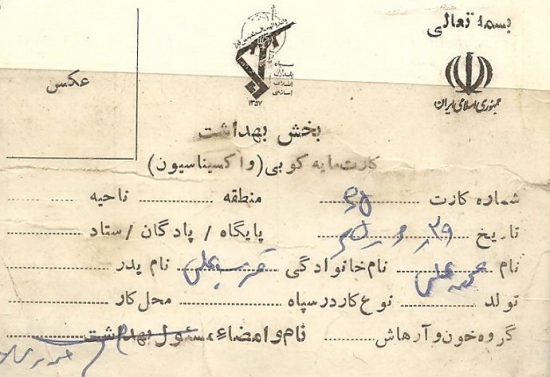 بسمه تعالی
جمهوری اسلامی ایران
سپاه پاسداران انقلاب اسلامی
۱۳۵۷
عکس
بخش بهداشت
کارت مایه کوبی (واکسیناسیون)
شماره کارت منطقه ناحیه
تاریخ پایگاه / پادگان / ستاد
نام نام خانوادگی نام پدر
تولد نوع کار در سپاه محل کار
گروه خون و آرهاش نام و امضاء مسئول بهداشت